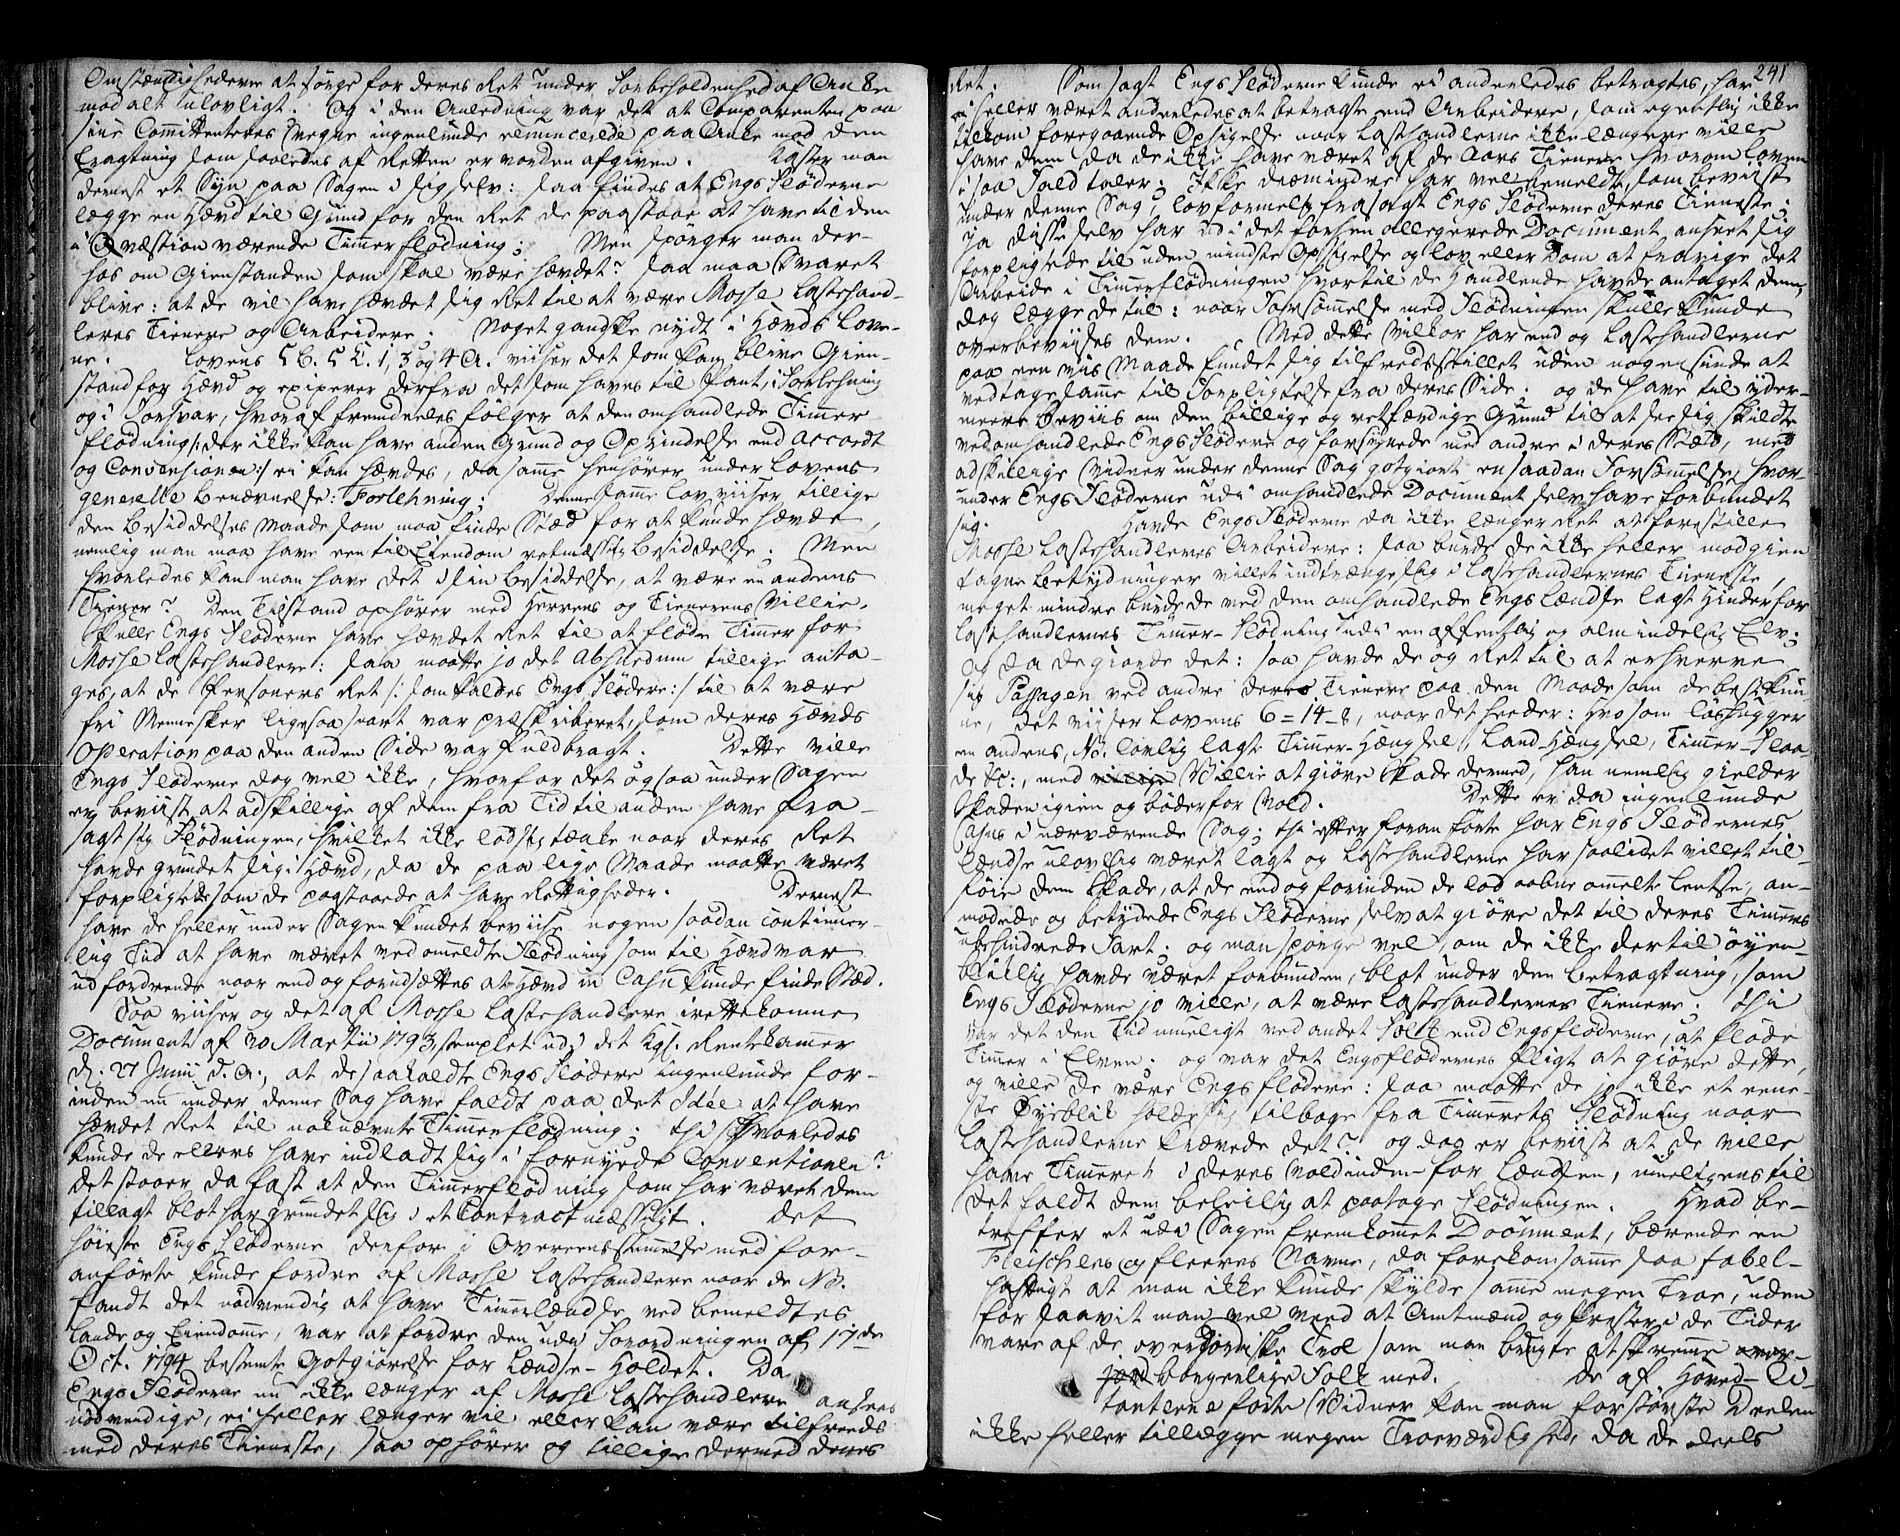 Omstændighederne at sørge for deres Ret under Forbeholdenhed af
mod alt ulovligt. Og i den Anledning var det at Comparenten paa
sine Committenteres Vegne ingenlunde renuncerede paa Anke mod den
Eragtning som saaledes af Retten er vorden afgiven. Kaster man
dernest et Syn paa Sagen i sig selv: saa findes at Engs Fløderne
lægge en Hævd til Grund for den Ret de paastaae at have til den
i Qvæstion værende Timmerflødning; Men spørger man der-
hos om Gienstanden som skal være hævdet? saa maa Svaret
blive: at de vil have hævdet sig Ret til at være Mosse Lastehand-
leres Tienere og Arbeidere. Noget gandske nydt i Hævds Love-
ne. Lovens 5 B. 5 C. 1, 3 og 4 A. viiser det som kan blive Gien-
stand for Hævd og eximerer derfra det som haves til Pant, i Forlehning
og i Forsvar, hvoraf fremdeeles følger at den omhandlede Timmer
flødning /: der ikke kan have anden Grund og Oprindelse end Accordt
og Conventionen :/ ei kan hævdes, da samme henhører under Lovens
generelle Benævnelse: Forlehning; Denne samme Lov viiser tillige
den Besiddelses Maade som maa finde Stæd for at kunde hævde,
nemlig man maa have een til Eiendom retmæssig Besiddelse. Men
hvorledes kan man have det i sin Besiddelse, at være en andens
Tiener? Den Tilstand ophører med Herrens og Tienerens Villie.
Skulle Engs Fløderne have hævdet Ret til at fløde Timmer for
Mosse Lastehandlere: saa maatte jo det Absurdum tillige anta-
ges, at de Personers Ret /: som kaldes Engs Flødere :/ til at være
frie Mennesker ligesaa snart var præskriberet, som deres Hævds
Operation paa den anden Side var fuldbragt. Dette ville
Engs Fløderne dog vel ikke, hvorfor det ogsaa under Sagen
er beviist at adskillige af dem fra Tid til anden have fra-
sagt sig Flødningen, hvilket ikke lod sig tænke naar deres Ret
havde grundet sig i Hævd, da de paa lige Maade maatte været
forpligtede som de paastaaede at have Rettigheder. Dernest
have de heller under Sagen kundet beviise nogen saadan continuer-
lig Tid at have været ved ommeldte Flødning som til Hævd var
udfordrende naar end og forudsættes at Hævd in Casu kunde finde Stæd.
Saa viiser og det af Mosse Lastehandlere irettekomne
Document af 30 Martii 1793, stemplet udi det Kgl. Rentekammer
d. 27 Junii d. A., at de saakaldte Engs Flødere ingenlunde for-
inden nu under denne Sag have faldt paa det Idée at have
hævdet Ret til noknævnte Timmerflødning; thi hvorledes
kunde de ellers have indladt sig i fornyede Conventioner?
det staaer da fast at den Timmerflødning som har været dem
tillagt blot har grundet sig i et Contractmæssigt. Det
høieste Engs Fløderne derfor i Overeensstemmelse med for-
anførte kunde fordre af Mosse Lastehandlere naar de No:
fandt det nødvendig at have Timmerlændse ved bemeldtes
Lande og Eiendomme, var at fordre den udi Forordningen af 17de
Oct. 1794 bestemte Godtgiørelse for Lændse-Holdet. Da
Engs Fløderne nu ikke længer af Mosse Lastehandlere ansees
nødvendige, ei heller længer vil eller kan være tilfreds
med deres Tieneste, saa ophører og tillige dermed deres
241
Ret. Som sagt Engs Fløderne kunde ei anderledes betragtes, har
ei heller været anderledes at betragte end Arbeidere, som egentlig ikke
tilkom foregaaende Opsigelse naar Lasthandlerne ikke længere ville
have dem da de ikke have været af de Aars Tienere hvorom Loven
i saa Fald taler; Ikke diemindre har vel bemeldte, som beviist
under denne Sag, lovformelig frasagt Engs Fløderne deres Tieneste;
ja disse selv har udi det forhen allegerede Document anseet sig
forpligtede til uden mindste Opsigelse og Lov eller Dom at fravige det
Arbeide i Timmerflødningen hvortil de Handlende havde antaget dem,
dog lægge de til: naar Forsømmelse med Flødningen skulle kunde
overbeviises dem. Med dette Vilkor har end og Lastehandlerne
paa een viis Maade fundet sig tilfredsstillet uden nogensinde at
vedtage samme til Forpligtelse fra deres Side. og de have til yder-
meere Beviis om den billige og retfærdige Grund til at see sig skildte
ved omhandlede Engs Flødere og forsynede med andre i deres Stæd, med
adskillige Vidner under denne Sag godtgiort en saadan Forsømmelse, hvor-
under Engs Fløderne udi omhandlede Document selv have forbundet
sig. Havde Engs Fløderne da ikke længer Ret at forestille
Mosse Lastehandleres Arbeidere: saa burde de ikke heller mod gien
tagne Betydninger villet indtrænge sig i Lastehandlernes Tieneste,
meget mindre burde de ved den omhandlede Engs Lændse lagt Hinder for
Lastehandlernes Timmer-Flødning udi en offentlig og almindelig Elv;
og da de giorde det: saa havde de og Ret til at erhverve
sig Passagen ved andre deres Tienere paa den Maade som de best kun-
ne, det viiser Lovens 6-14-8, naar det heeder: Hvo som løshugger
en andens, No: lovlig lagte Timmer-Hængsel, Land-Hængsel, Timmer-Flaa
de &c:, med Villie at giøre Skade dermed, han nemlig gielder
Skaden igien og bøder for Vold. Dette er da ingenlunde
Casus i nærværende Sag; thi efter foran førte har Engs Flødernes
Lændse ulovlig været lagt og Lastehandlerne har saa lidet villet til-
føie dem Skade, at de end og forinden de lod aabne ommelte Lentse, an-
modede og betydede Engs Fløderne selv at giøre det til deres Timmers
ubehindrede Fart; og man spørge vel, om de ikke dertil øyen-
blikkelig havde været forbunden, blot under den Betragtning, som
Engs Fløderne jo ville, at være Lastehandlernes Tienere. thi
var det den Tid mueligt ved andet Folk end Engsfløderne, at fløde
Timmer i Elven; og var det Engsflødernes Pligt at giøre dette,
og ville de være Engs flødere: saa maatte de jo ikke et eene-
ste Øyeblik holde sig tilbage fra Timmerets Flødning naar
Lastehandlerne krævede det? og dog er beviist at de ville
have Timmeret i deres Vold inden for Lændsen, mueligens til
det faldt dem beleilig at paatage Flødningen. Hvad be-
treffer et udi Sagen fremkommet Document, bærende en
Fleischers og fleeres Navne, da forekom samme saa fabel-
hafftigt at man ikke kunde skylde samme megen Troe, uden
for saavit man vel veed at Amtmænd og Præster i de Tider
vare af de overjordiske Trol som man brugte at skremme
borgerlige Folk med. De af Hoved-Ci-
tanterne førte Vidner kan man for største Deelen
ikke heller tillægge megen Troeværdighed, da de deels